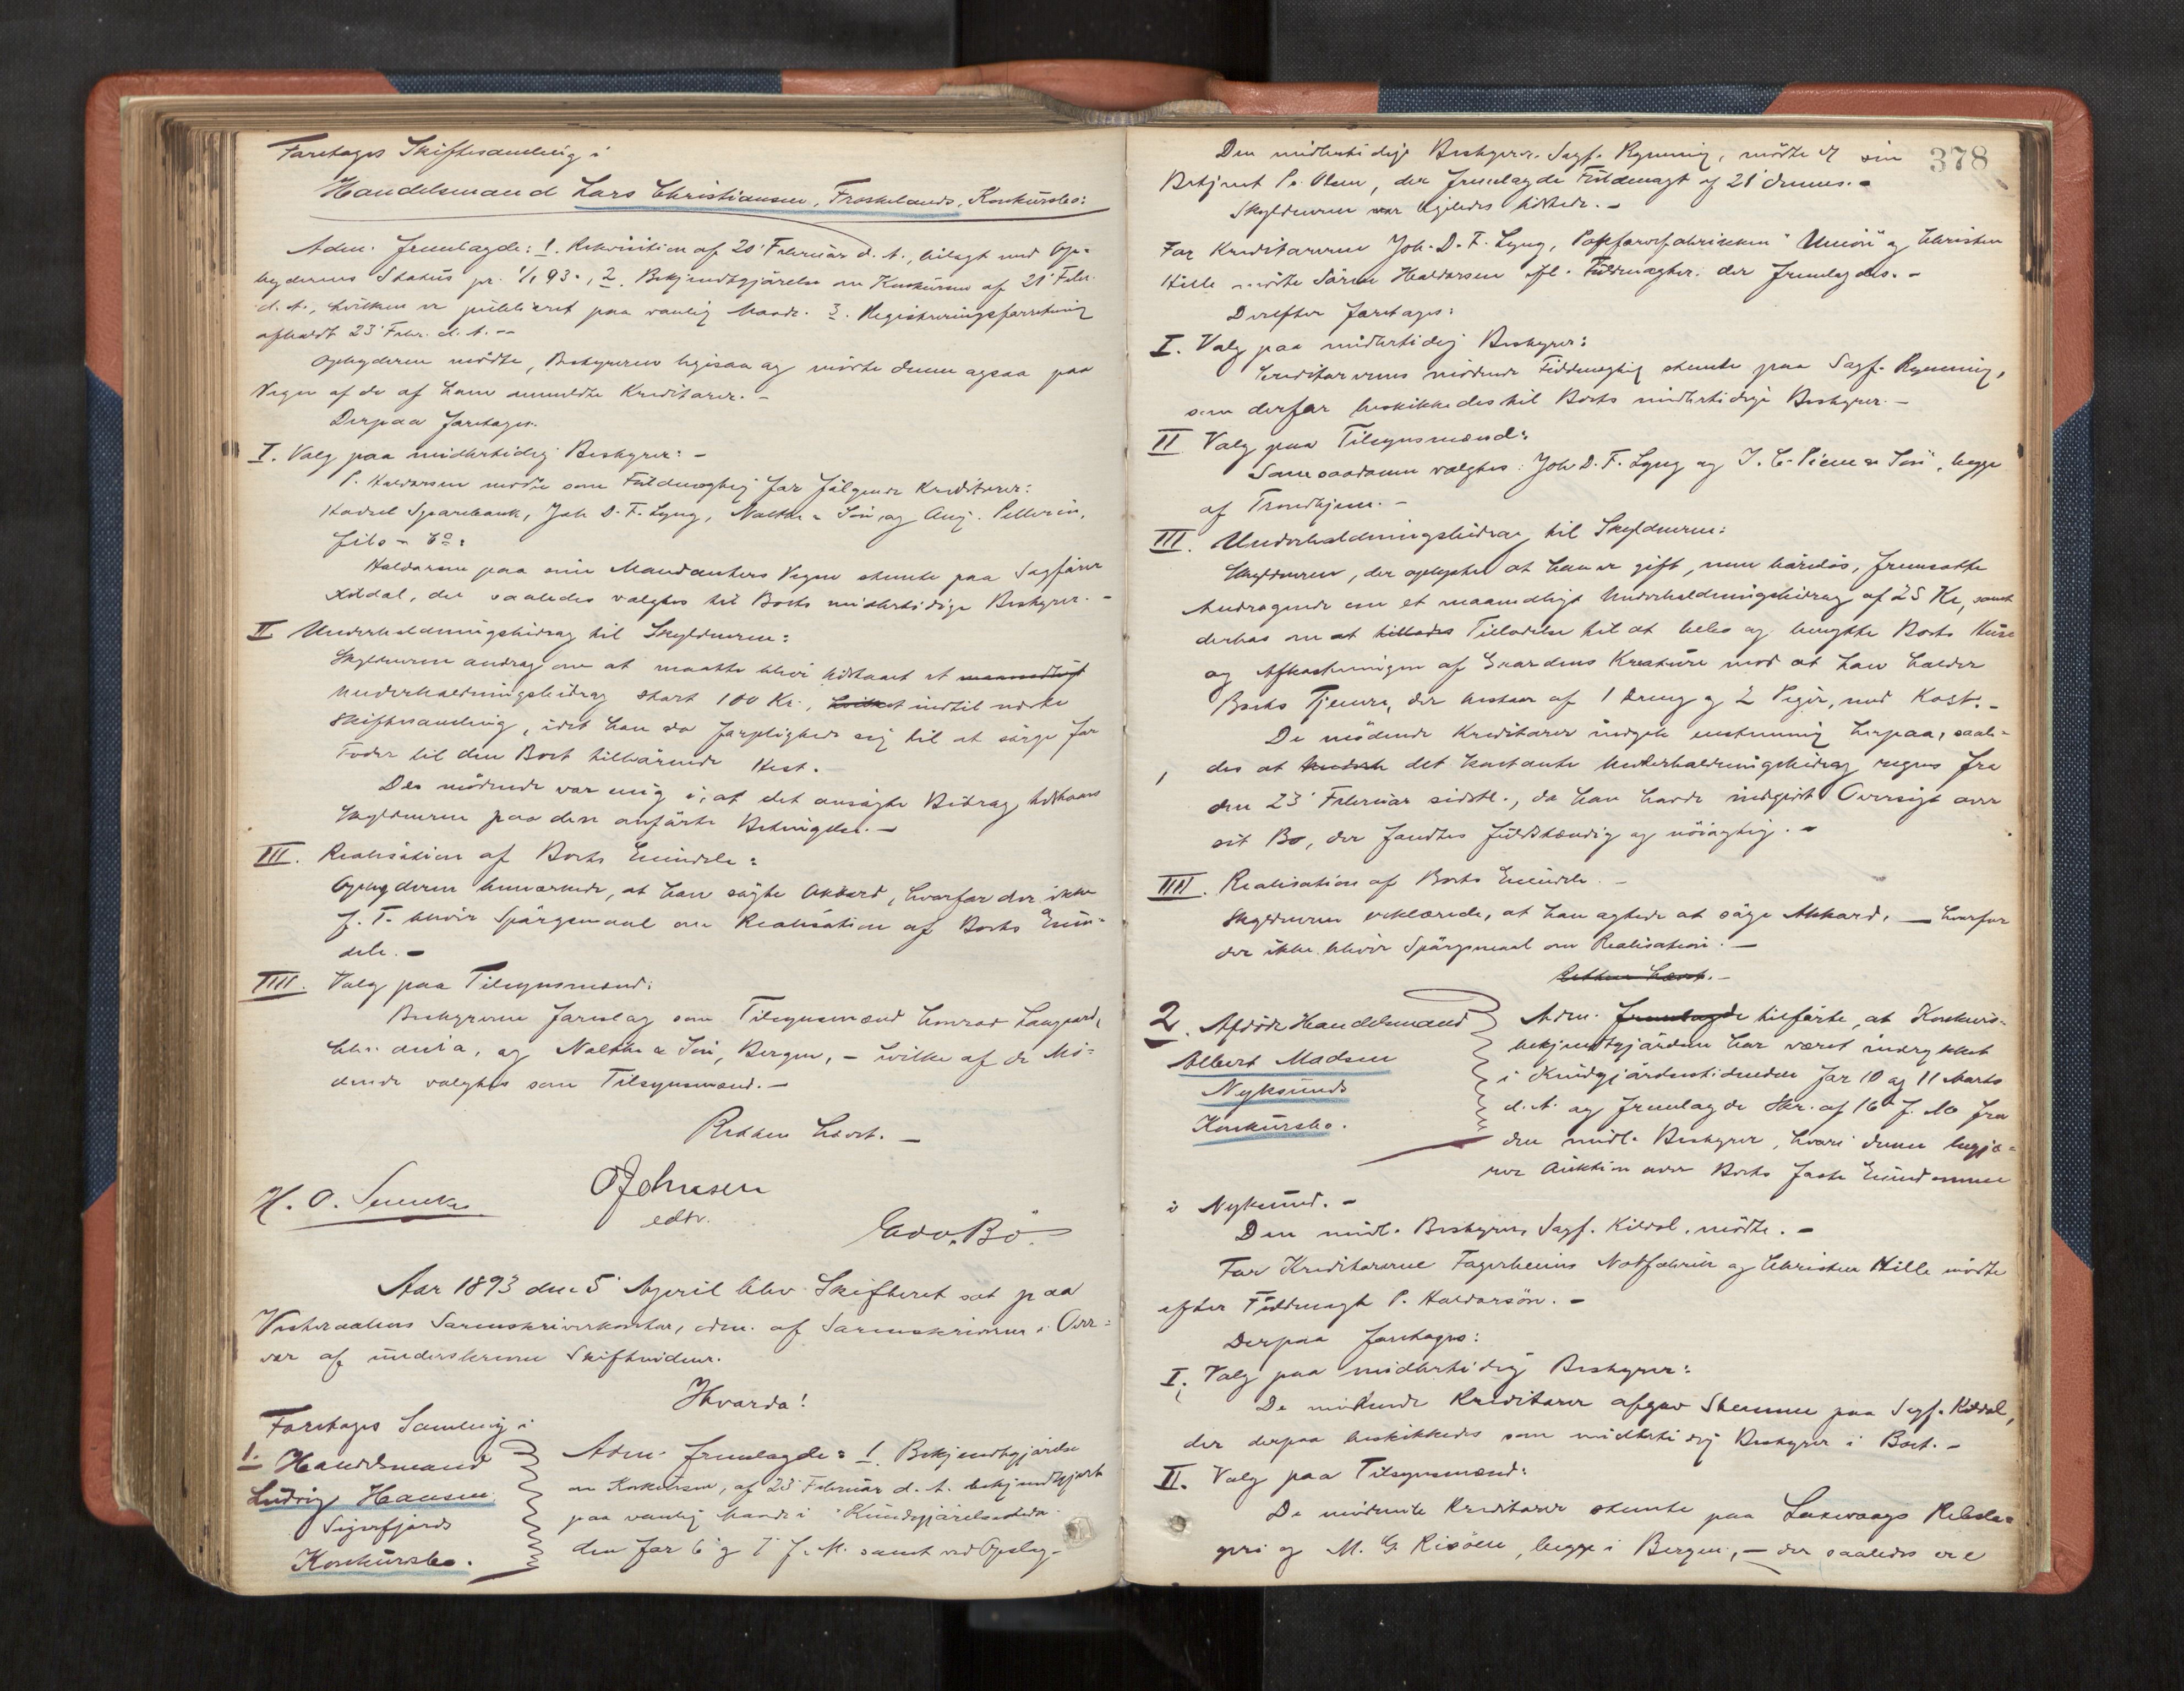 Foretages Skiftesamling i
Handelsmand Lars Christiansen, Froskelands, Konkursbo:
Adm. fremlagde: 1. Rekvisition af 20' Februar d. A., bilagt med Op-
byderens Status pr. 1/1 93., 2. Bekjendtgjørelse om Konkursen af 21' Febr.
d. A., hvilken er publiceret paa vanlig Maade. 3. Registreringsforretning
afholdt 23' Febr. d. A. --
Opbyderen mødte, Bestyreren ligesaa og mødte denne ogsaa paa
Vegne af de af ham anmeldte Kreditorer. -
Derpaa foretages.
I. Valg paa midlertidig Bestyrer: -
P. Haldorsen mødte som Fuldmægtig for følgende Kreditorer:
Hadsel Sparebank, Joh D. F. Lyng, & Søn, og Aug. Pellerin,
fils & Co:
Haldorsen paa sine Mandanters Vegne stemte paa Sagfører
Kildal, der saaledes valgtes til Boets midlertidige Bestyrer. -
II Underholdningsbidrag til Skyldneren:
Skyldneren androg om at maatte blive tilstaaet et maanedligt
Underholdningsbidrag stort 100 Kr., hvilket indtil næste
Skiftesamling, idet han da forpligtede sig til at sørge for
Foder til den Boet tilhørende Hest.
De mødende var enig i, at det ansøgte Bidrag tilstaaes
Skyldneren paa den anførte Betingelse. -
III. Realisation af Boets Eiendele:
Opbyderen bemærkede, at han søgte Akkord, hvorfor der ikke
f. T. bliver Spørgsmaal om Realisation af Boets Eien-
dele. -
IIII. Valg paa Tilsynsmænd:
Bestyreren foreslog som Tilsynsmænd Conrad Langaard,
Chr.ania, og & Søn, Bergen, - hvilke af de Mø-
dende valgtes som Tilsynsmænd. -
Retten hævet. -
H. O.
O Johnsen
edsv.
Edv. Bø.
Aar 1893 den 5' April blev Skifteret sat paa
Vesteraalens Sorenskriverkontor, adm. af Sorenskriveren i Over-
vær af underskrevne Skiftevidner.
Hvorda!
Foretages Samling i
1. Handelsmand
Ludvig Hansen
Sigerfjords
Konkursbo.
Adm. fremlagde: 1. Bekjendtgjørelse
om Konkursen, af 23' Februar d. A. bekjendtgjort
paa vanlig Maade i "Kundgjørelsestiden-
den for 6' og 7' f. M. samt ved Opslag.
378
Den midlertidige Bestyrer, Sagf. Rynning, mødte ved sin
Betjent P. Olsen, der fremlagde Fuldmagt af 21' dennes. -
Skyldneren var ligeledes tilstede. -
For Kreditorerne Joh. D. F. Lyng, "Union" og Christen
Hille mødte Søren Haldorsen ifl. Fuldmagter, der fremlagdes. -
Derefter foretages:
I. Valg paa midlertidig Bestyrer:
Creditorernes mødende Fuldmægtig stemte paa Sagf. Rynning,
som derfor beskikkedes til Boets midlertidige Bestyrer. -
II Valg paa Tilsynsmænd:
Som saadanne valgtes: Joh D. F. Lyng og I. C. Piene & Søn, begge
af Trondhjem. -
III. Underholdningsbidrag til Skyldneren:
Skyldneren, der oplyste at han er gift, men barnløs, fremsatte
Andragende om et maanedligt Underholdningsbidrag af 25 Kr, samt
derhos om at tillades Tilladelse til at bebo og benytte Boets Huse
og Afkastningen af Gaardens Kreature mod at han holder
Boets Tjenere, der bestaar af 1 Dreng og 2 Piger, med Kost. -
De mødende Kreditorer indgik enstemmig herpaa, saale-
des at det kontante Underholdningsbidrag regnes fra
den 23' Februar sidstl., da han havde indgivet Oversigt over
sit Bo, der fandtes fuldstændig og nøiagtig. -
IIII. Realisation af Boets Eiendele. -
Skyldneren erklærede, at han agtede at søge Akkord, - hvorfor
der ikke bliver Spørgsmaal om Realisation. -
Retten hævet. -
2. Afdøde Handelsmand
Albert Madsen
Nyksunds
Konkursbo.
Adm. fremlagde tilførte, at Konkurs-
bekjendtgjørelsen har været indrykket
i Kundgjørelsestidenden for 10 og 11 Marts
d. A. og fremlagde Skr. af 16' f. M. fra
den midl. Bestyrer, hvori denne begjæ-
rer Auktion over Boets faste Eiendomme
i Nyksund. -
Den midl. Bestyrer, Sagf. Kildal, mødte. -
For Kreditorerne Fagerheims Notfabrik og Christen Hille mødte
efter Fuldmagt P. Haldorsøn. -
Derpaa foretages:
I. Valg paa midlertidig Bestyrer:
De mødende Kreditorer afgav Stemme paa Sagf. Kildal,
der derpaa beskikkedes som midlertidig Bestyrer i Boet. -
II. Valg paa Tilsynsmænd:
De mødende Kreditorer stemte paa Laxevaags Rebsla-
geri og M. G. Risøen, begge i Bergen, - der saaledes ere